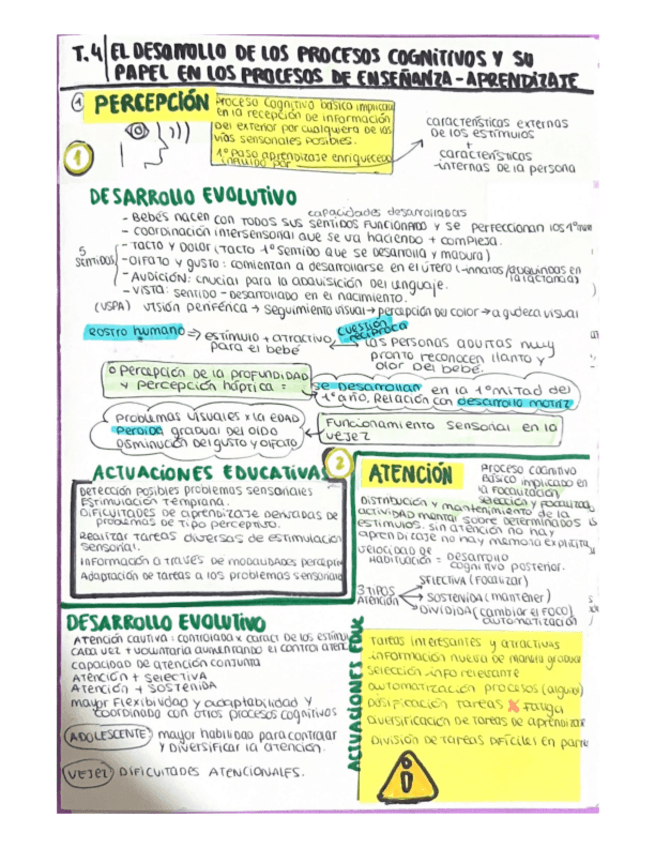 T.4 EL DESARROLLO DE LOS PROCESOS COGNITIVOS Y SU
PAPEL EN LOS PROCESOS DE ENSEÑANZA-APRENDIZAJE
1 PERCEPCIÓN
Proceso cognitivo básico implicado
en la recepción de información
del exterior por cualquiera de las
vías sensoriales posibles.
1º paso aprendizaje enriquecedor
influido por
características externas
de los estímulos
+
características
internas de la persona
1
DESARROLLO EVOLUTIVO
capacidades desarrolladas
- Bebés nacen con todos sus sentidos funcionando y se perfeccionan los 1º
- Coordinación intersensorial que se va haciendo + compleja.
5 sentidos
- Tacto y dolor (Tacto 1º sentido que se desarrolla y madura)
- Olfato y gusto: comienzan a desarrollarse en el útero (-innatos/adquiridos en
la lactancia)
- Audición: crucial para la adquisición del lenguaje.
- Vista: sentido - desarrollado en el nacimiento.
(VSPA) visión periférica → seguimiento visual → percepción del color → agudeza visual
Rostro humano ⇒ estímulo + atractivo
para el bebé
cuestión
recíproca
Las personas adultas muy
pronto reconocen llanto y
olor del bebé.
Percepción de la profundidad
y percepción háptica =
se desarrollan en la 1º mitad del
1º año. Relación con desarrollo motriz
Problemas visuales x la edad
Perdida gradual del oído
Disminución del gusto y olfato
Funcionamiento sensorial en la
vejez
ACTUACIONES EDUCATIVAS
Detección posibles problemas sensoriales
Estimulación temprana.
Dificultades de aprendizaje derivadas de
problemas de tipo perceptivo.
Realizar tareas diversas de estimulación
sensorial.
Información a través de modalidades
Adaptación de tareas a los problemas sensoriales
2
ATENCIÓN
Proceso cognitivo
básico implicado en
la focalización
selección y
distribución y mantenimiento de la
actividad mental sobre determinados
estímulos. Sin atención no hay
aprendizaje no hay memoria explícita
velocidad de
habituación = desarrollo
cognitivo posterior.
3 tipos
atención
selectiva (focalizar)
sostenida (mantener)
dividida (cambiar el foco)
automatización
DESARROLLO EVOLUTIVO
Atención cautiva: controlada x caract de los
cada vez + voluntaria aumentando el control
capacidad de atención conjunta
Atención + selectiva
Atención + sostenida
mayor flexibilidad y adaptabilidad y
coordinado con otros procesos cognitivos
ADOLESCENTE: mayor habilidad para controlar
y diversificar la atención.
VEJEZ DIFICULTADES ATENCIONALES.
ACTUACIONES EDUC
Tareas interesantes y atractivas
información nueva de manera gradual
selección info relevante
automatización procesos
dosificación tareas X fatiga
diversificación de tareas de aprendizaje
División de tareas difíciles en